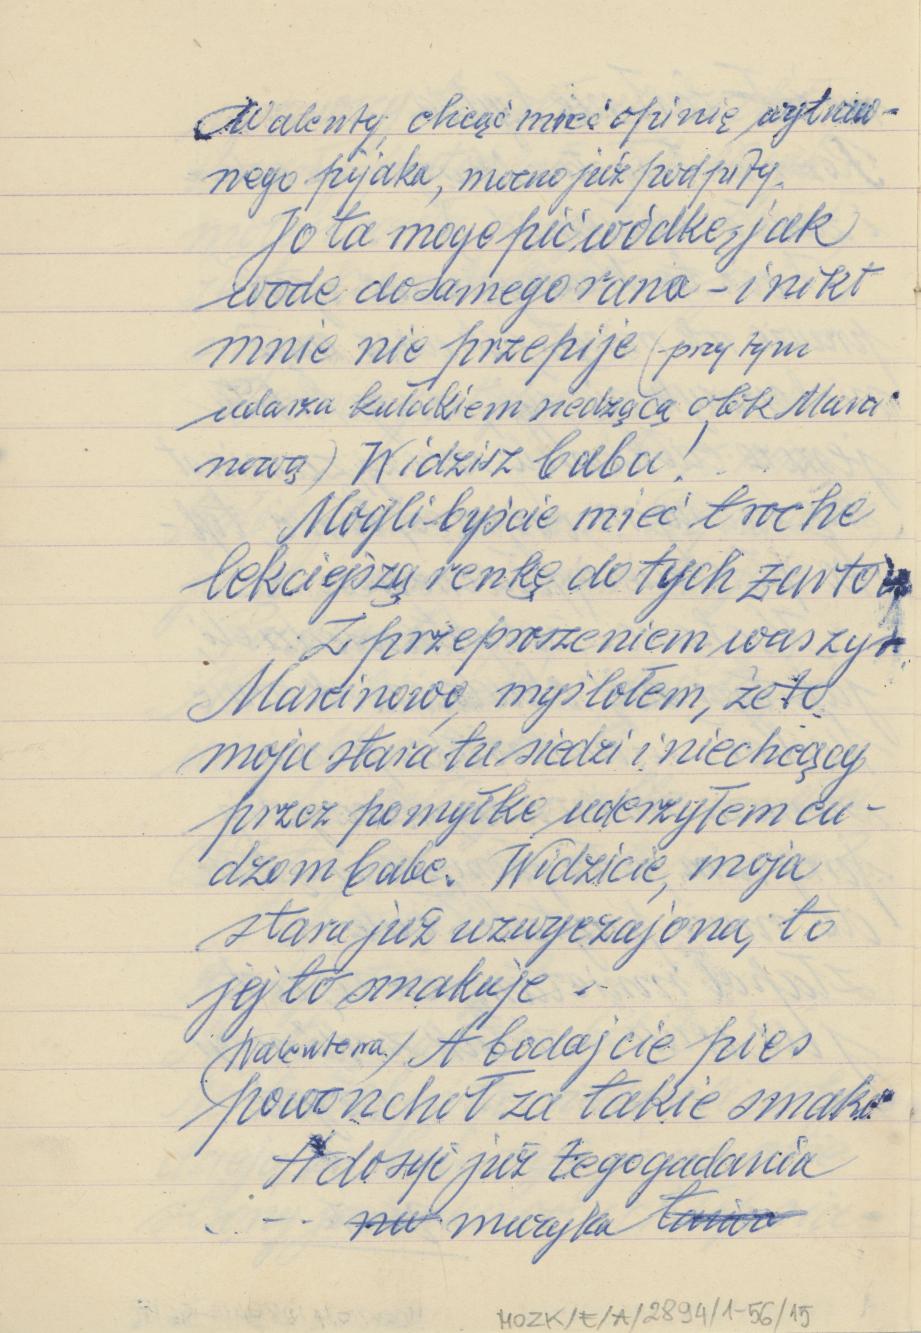 Walenty, chcąć mieć opinię wytraw-
nego pijaka, mocno już podpity.
Jo ta moge pić wódke, jak
wode do samego rana - i nikt
mnie nie przepije (przy tym
udarza kułakiem siedzącą obok Marci
nową) Widzisz baba!
Mogli-byście mieć troche
lekciejszą renkę do tych żartów
Z przeproszeniem waszym
Marcinowo, myślołem, że to
moja stara tu siedzi i niechcący
przez pomyłke uderzyłem cu-
dzom babe. Widzicie, moja
stara już wzwyczajona, to
jej to smakuje -
(Walentowa) A bodajcie pies
powonchoł za takie smaki
A dosyć już tego gadania
muzyka
MOZK/E/A/2894/1-56/15